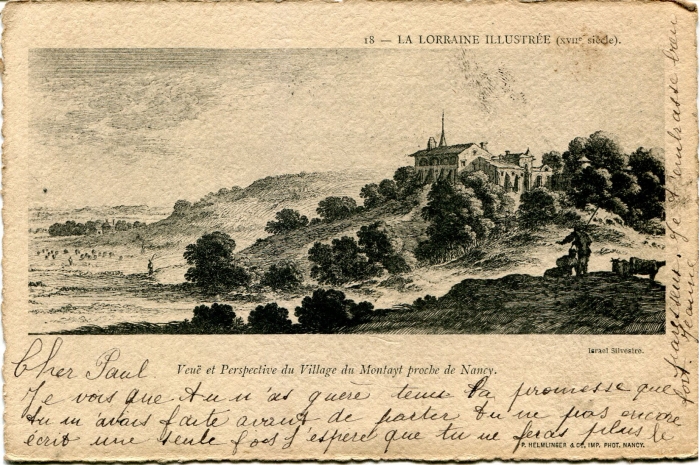 18 — LA LORRAINE ILLUSTRÉE (XVIIe siècle).
Israel Silvestre.
Veuë et Perspective du Village du Montayt proche de Nancy.
Cher Paul
Je vois que tu n'as guère tenu ta promesse que
tu m'avais faite avant de partir tu ne pas encore
écrit une seule fois j'espère que tu ne feras plus le
paresseux. Je t'embrasse bien
fort
P. HELMLINGER & Cie, IMP. PHOT. NANCY.